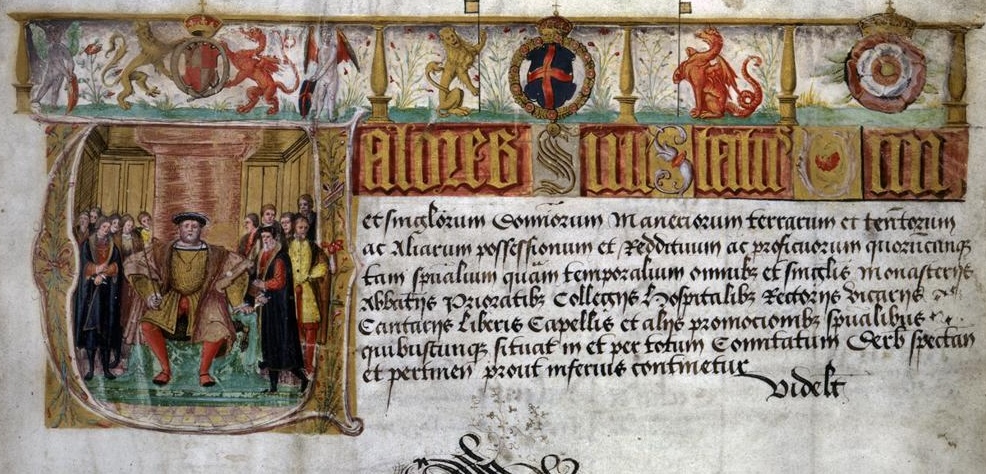 Valores Sive Statuum Omnium
et singlorum Domiorum Maneriorum terrarum et tentorum
ac Aliarum possessionum et Reddituum ac proficuorum quorumcunq
tam spualium quam temporalium omnibz et singlis Monasterijs
Abbatijs Prioratibz Collegijs Hospitalibz Rectorijs Vicarijs
Cantarijs Liberis Capellis et alijs promocionibz spualibus
quibuscunqz situat in et per totum Comitatum Derb spectan
et pertinen prout inferius continetur
Videlt